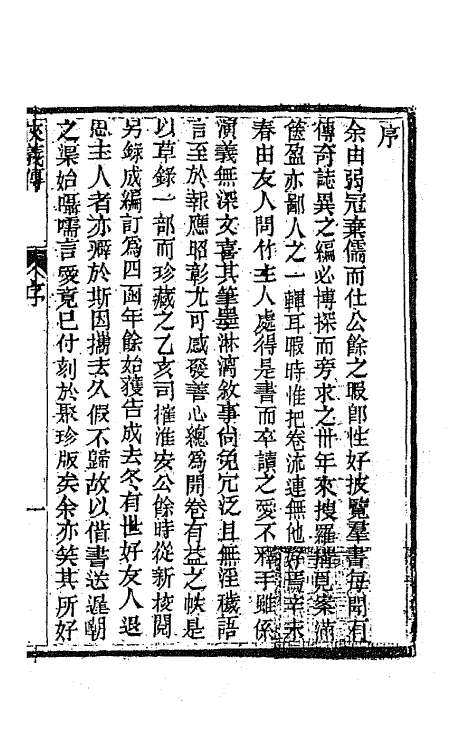 序
余由弱冠棄儒而仕公餘之暇卽性好披覽羣書每聞有
傳奇誌異之編必博採而旁求之卅年來搜羅構覓案滿
篋盈亦鄙人之一癖耳暇時惟把卷流連無他好焉辛未
春由友人問竹主人處得是書而卒讀之愛不釋手雖係
演義無深文喜其筆墨淋漓敘事尙免冗泛且無淫穢語
言至於報應昭彰尤可感發善心總爲開卷有益之帙是
以草錄一部而珍藏之乙亥司搉淮安公餘時從新校閱
另錄成編訂爲四函年餘始獲告成去冬有世好友人退
思主人者亦癖於斯因攜去久假不歸故以借書送遲嘲
之渠始囁嚅言愛竟已付刻於聚珍版矣余亦笑其所好
俠義傳
序
一